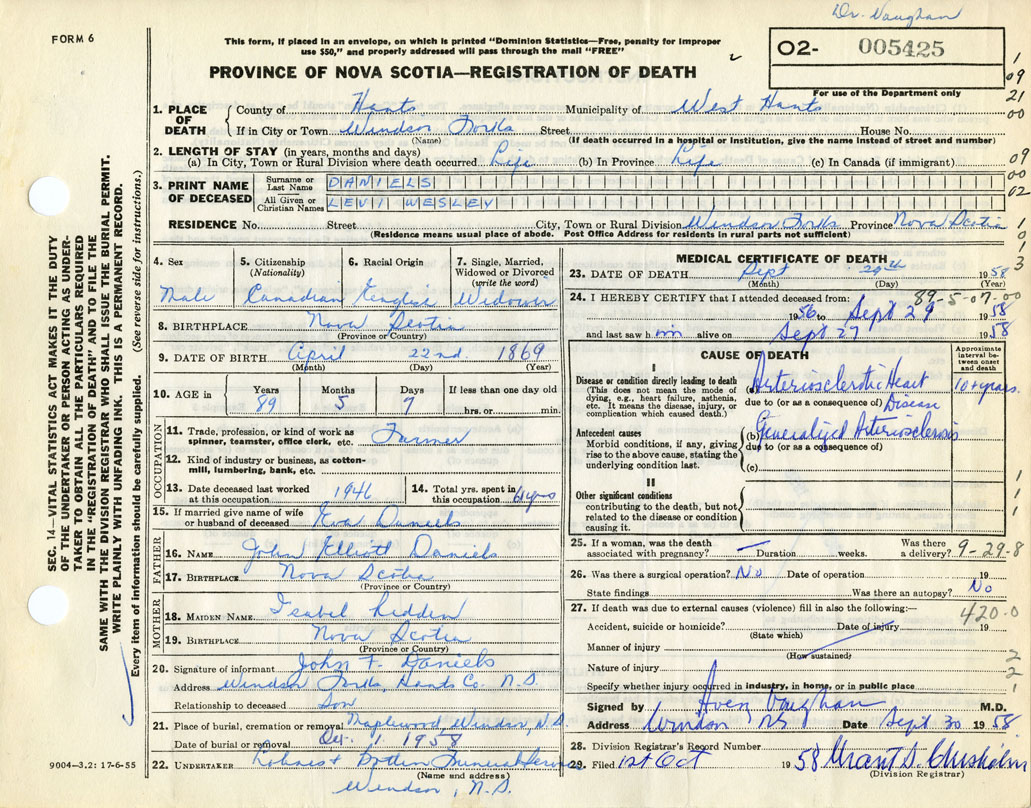 Dr. Vaughan
FORM 6
This form, if placed in an envelope, on which is printed "Dominion Statistics—Free, penalty for improper
use $50," and properly addressed will pass through the mail "FREE"
PROVINCE OF NOVA SCOTIA—REGISTRATION OF DEATH
O2- 005425
For use of the Department only
1
09
21
00
1. PLACE OF DEATH
County of Hants Municipality of West Hants
If in City or Town Windsor Forks Street House No.
(Name) (If death occurred in a hospital or institution, give the name instead of street and number)
2. LENGTH OF STAY (in years, months and days)
(a) In City, Town or Rural Division where death occurred Life (b) In Province Life (c) In Canada (if immigrant)
09
00
02
3. PRINT NAME OF DECEASED
Surname or Last Name DANIELS
All Given or Christian Names LEVI WESLEY
RESIDENCE No. Street City, Town or Rural Division Windsor Forks Province Nova Scotia
(Residence means usual place of abode. Post Office Address for residents in rural parts not sufficient)
1
0
1
3
SEC. 14—VITAL STATISTICS ACT MAKES IT THE DUTY
OF THE UNDERTAKER OR PERSON ACTING AS UNDER-
TAKER TO OBTAIN ALL THE PARTICULARS REQUIRED
IN THE "REGISTRATION OF DEATH" AND TO FILE THE
SAME WITH THE DIVISION REGISTRAR WHO SHALL ISSUE THE BURIAL PERMIT.
WRITE PLAINLY WITH UNFADING INK. THIS IS A PERMANENT RECORD.
Every item of information should be carefully supplied. (See reverse side for instructions.)
4. Sex
Male
5. Citizenship
(Nationality)
Canadian
6. Racial Origin
English
7. Single, Married,
Widowed or Divorced
(write the word)
Widower
8. BIRTHPLACE Nova Scotia
(Province or Country)
9. DATE OF BIRTH April 22nd 1869
(Month) (Day) (Year)
10. AGE in
Years Months Days If less than one day old
89 5 7 hrs. or min.
OCCUPATION
11. Trade, profession, or kind of work as
spinner, teamster, office clerk, etc. Farmer
12. Kind of industry or business, as cotton-
mill, lumbering, bank, etc.
13. Date deceased last worked
at this occupation 1946
14. Total yrs. spent in
this occupation
15. If married give name of wife
or husband of deceased Eva Daniels
FATHER
16. NAME John Elliott Daniels
17. BIRTHPLACE Nova Scotia
(Province or Country)
MOTHER
18. MAIDEN NAME Isabel Redden
19. BIRTHPLACE Nova Scotia
(Province or Country)
20. Signature of informant John F. Daniels
Address Windsor Forks, Hants Co. N.S.
Relationship to deceased Son
21. Place of burial, cremation or removal Maplewood, Windsor, N.S.
Date of burial or removal Oct. 1 1958
22. UNDERTAKER Funeral
(Name and address)
Windsor, N.S.
9004—3.2: 17-6-55
MEDICAL CERTIFICATE OF DEATH
23. DATE OF DEATH Sept 29th 1958
(Month) (Day) (Year)
89-5-07-00
24. I HEREBY CERTIFY that I attended deceased from:
1956 to Sept 29 1958
and last saw him alive on Sept 27 1958
CAUSE OF DEATH
Approximate
interval be-
tween onset
and death
I
Disease or condition directly leading to death
(This does not mean the mode of
dying, e.g., heart failure, asthenia,
etc. It means the disease, injury, or
complication which caused death.)
(a) Arteriosclerotic Heart 10+ years.
due to (or as a consequence of) Disease
Antecedent causes
Morbid conditions, if any, giving
rise to the above cause, stating the
underlying condition last.
(b) Generalized Arteriosclerosis
due to (or as a consequence of)
(c)
II
Other significant conditions
contributing to the death, but not
related to the disease or condition
causing it.
1
1
1
1
25. If a woman, was the death
associated with pregnancy? Duration weeks. Was there
a delivery? 9-29-8
26. Was there a surgical operation? No Date of operation 19
State findings Was there an autopsy? No
27. If death was due to external causes (violence) fill in also the following:—
420-0
Accident, suicide or homicide? Date of injury 19
(State which)
Manner of injury
(How sustained)
2
Nature of injury
2
Specify whether injury occurred in industry, in home, or in public place
1
Signed by Aven Vaughan M.D.
Address Windsor NS Date Sept 30 1958
28. Division Registrar's Record Number
29. Filed 1st Oct 1958 Grant S. Chisholm
(Division Registrar)